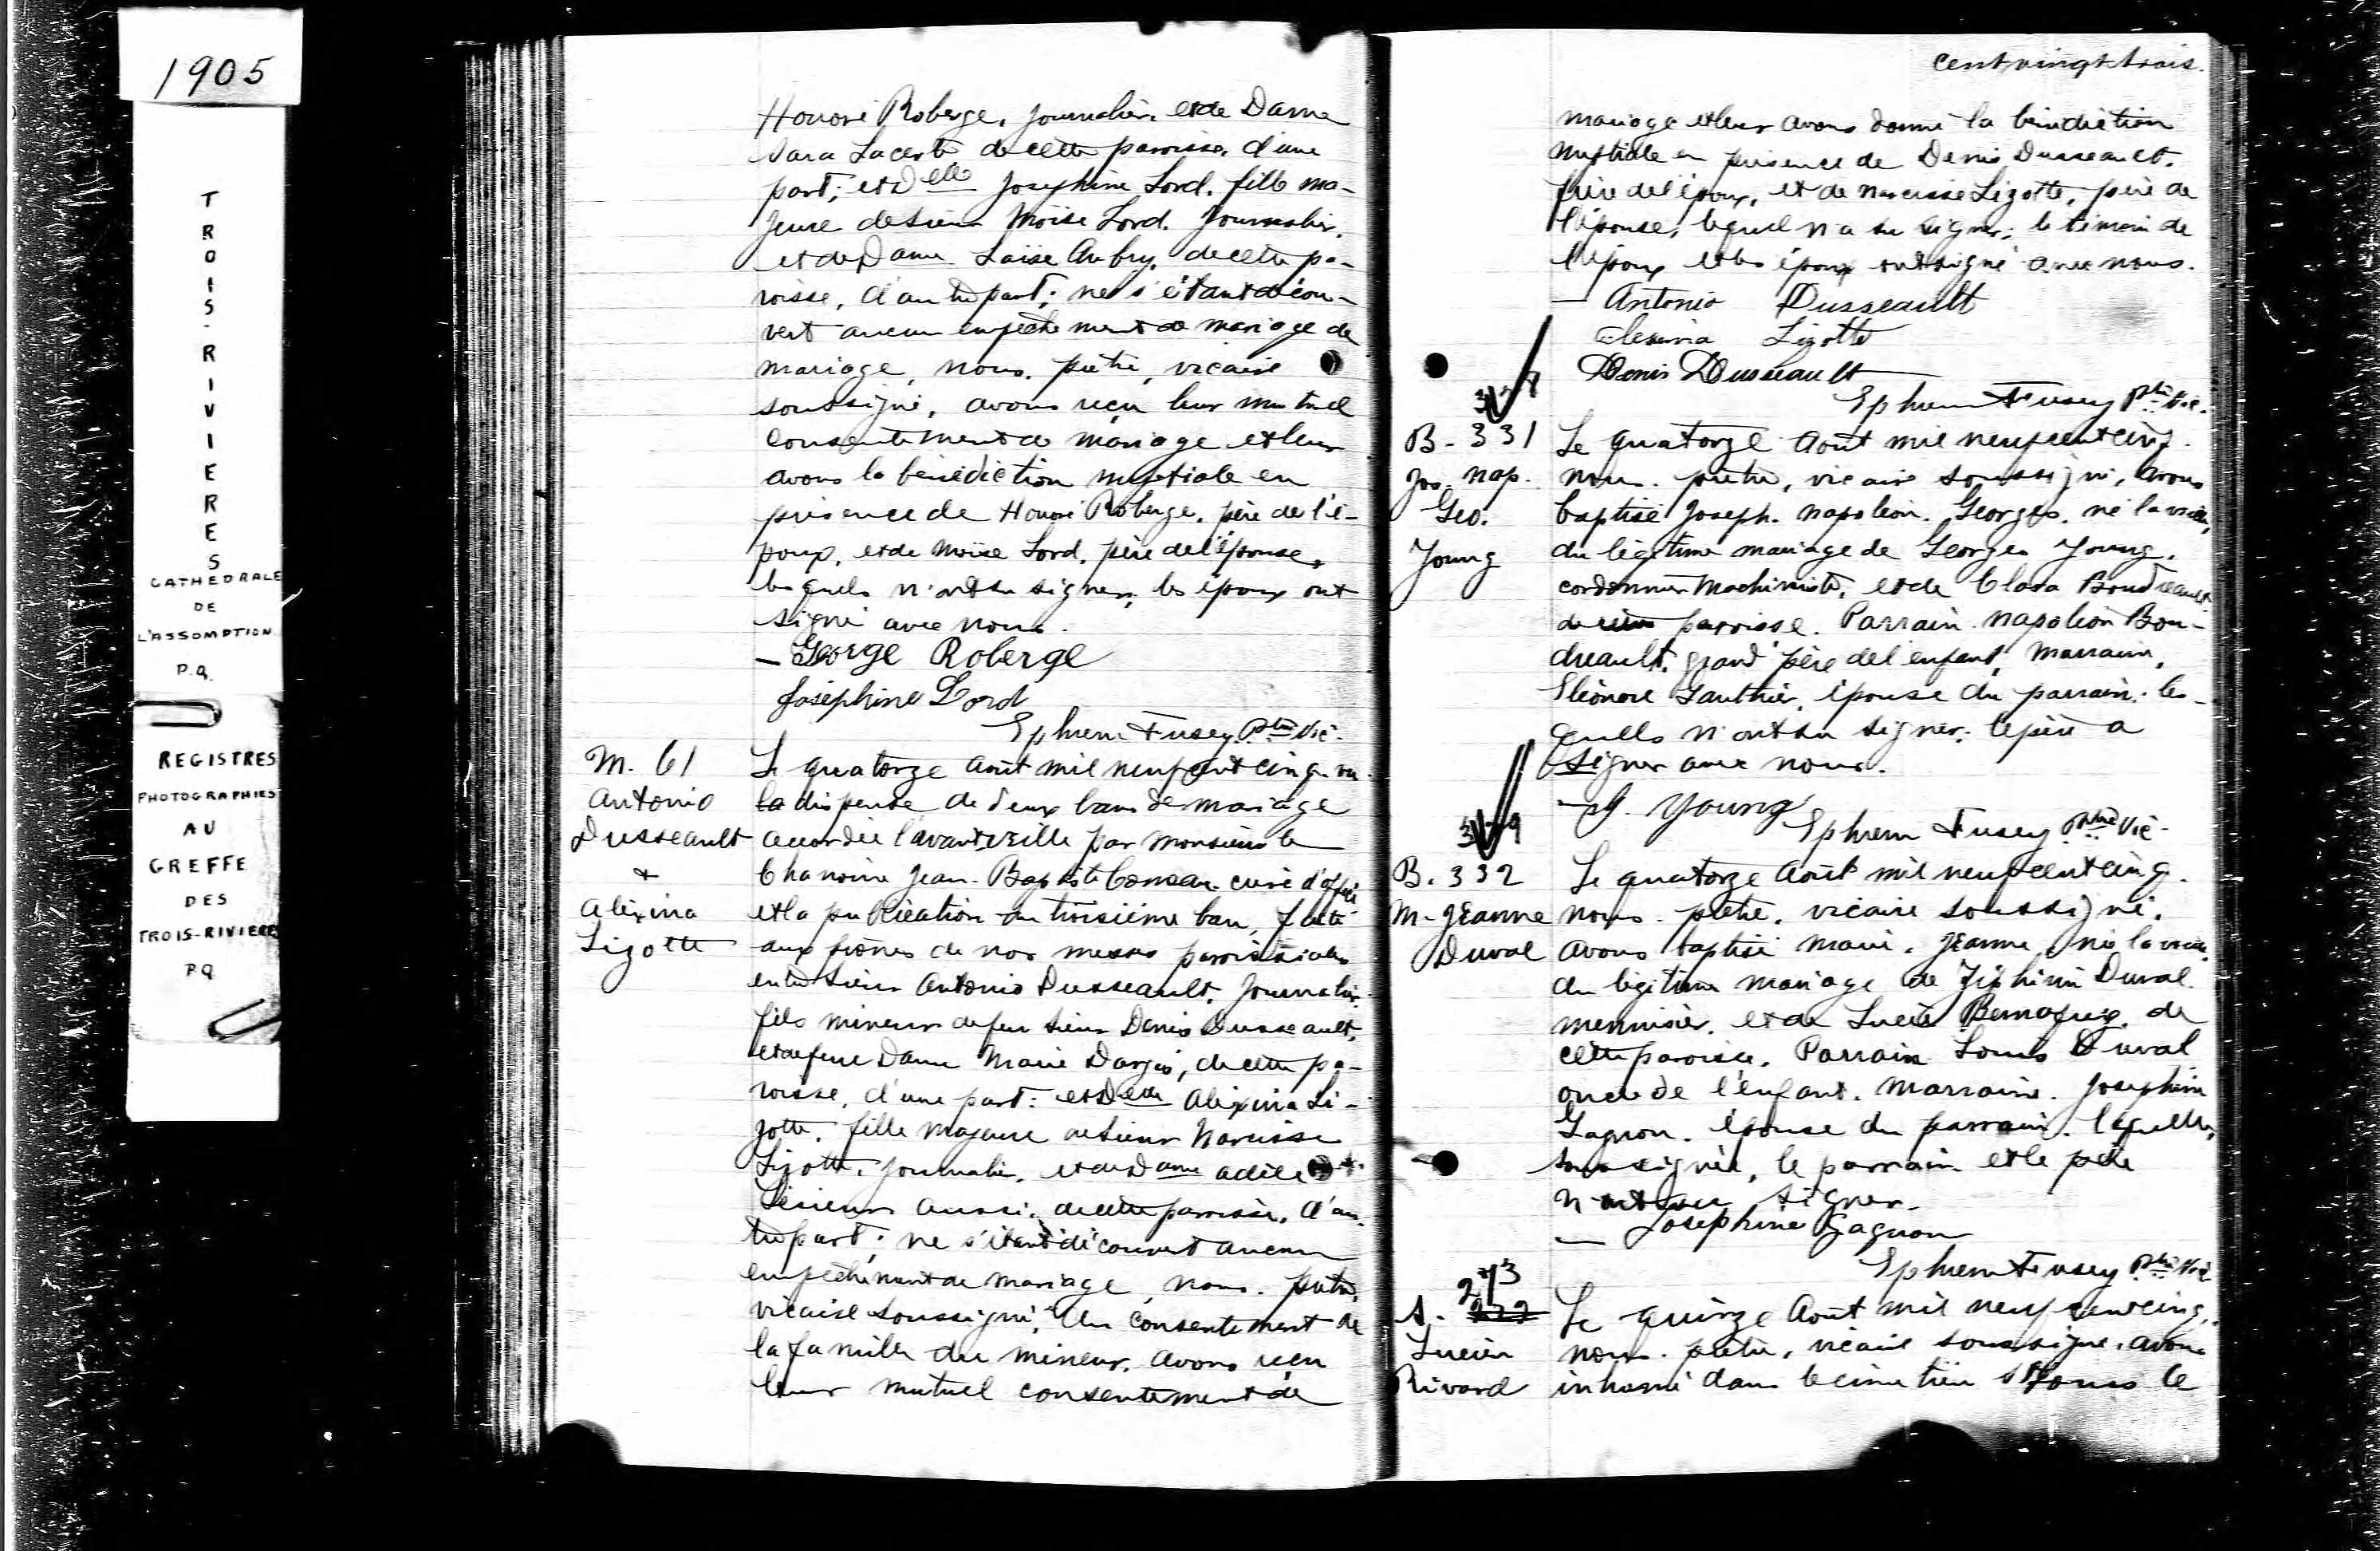 1905
TROIS-RIVIERES
CATHEDRALE
DE
L'ASSOMPTION
P.Q.
REGISTRES
PHOTOGRAPHIES
AU
GREFFE
DES
TROIS-RIVIERES
P.Q
Honoré Roberge, journalier, et de Dame
Sara Lacerte de cette paroisse, d'une
part; et Delle Josephine Lord, fille ma-
jeure de Sieur Moïse Lord, journalier,
et de Dame Aubry, de cette pa-
roisse, d'autre part; ne s'étant décou-
vert aucun empêchement de mariage de
mariage, nous, prêtre, vicaire
soussigné, avons reçu leur mutuel
consentement de mariage et leur
avons la bénédiction nuptiale en
présence de Honoré Roberge, père de l'é-
poux, et de Moïse Lord, père de l'épouse,
lesquels n'ont su signer, les époux ont
signé avec nous.
— George Roberge
Joséphine Lord
Ephrem Fusey Ptre Vic.
M. 61
Antonio
Dusseault
+
Alexina
Lizotte
Le quatorze Août mil neuf cent cinq, vu
la dispense de deux bans de mariage
accordée l'avant veille par Monsieur le
Chanoine Jean-Baptiste Comeau, curé d'office
et la publication du troisième ban, faite
aux prônes de nos messes paroissiales
entre Sieur Antonio Dusseault, journalier,
fils mineur de feu Sieur Denis Dusseault,
et de feue Dame Marie Dargis, de cette pa-
roisse, d'une part: et Delle Alexina Li-
zotte, fille majeure de Sieur Narcisse
Lizotte, journalier, et de Dame Adèle
Lesieur aussi de cette paroisse, d'au-
tre part; ne s'étant découvert aucun
empêchement de mariage, nous, prêtre,
vicaire soussigné, du consentement de
la famille du mineur, avons reçu
leur mutuel consentement de
cent vingt trois.
mariage et leur avons donné la bénédiction
nuptiale en présence de Denis Dusseault,
frère de l'époux, et de Narcisse Lizotte, père de
l'épouse, lequel n'a su signer; le témoin de
l'époux et les époux ont signé avec nous.
— Antonio Dusseault
Lizotte
Denis Dusseault
Ephrem Fusey Ptre Vic.
B. 331
Jos. Nap.
Geo.
Young
Le quatorze Août mil neuf cent cinq,
nous, prêtre, vicaire soussigné, avons
baptisé Joseph, Napoléon, Georges, né la veille,
du légitime mariage de Georges Young,
cordonnier machiniste, et de Clara Boudreault
de paroisse. Parrain Napoléon Bou-
dreault, grand père de l'enfant, Marraine,
Eléonore Gauthier, épouse du parrain, les-
quels n'ont su signer; le père a
signer avec nous.
— G. Young
Ephrem Fusey Ptre Vic.
B. 332
M. Jeanne
Duval
Le quatorze Août mil neuf cent cinq,
nous, prêtre, vicaire soussigné,
avons baptisé Marie, Jeanne, née la veille,
du légitime mariage de Zéphirin Duval
menuisier, et de Lucie de
cette paroisse. Parrain Louis Duval
oncle de l'enfant. Marraine, Josephine
Gagnon, épouse du parrain, laquelle
soussignée, le parrain et le père
n'ont su signer.
— Josephine Gagnon
Ephrem Fusey Ptre Vic
273
S. 232
Lucien
Rivard
Le quinze Août mil neuf cent cinq,
nous, prêtre, vicaire soussigné, avons
inhumé dans le cimetière St Louis le